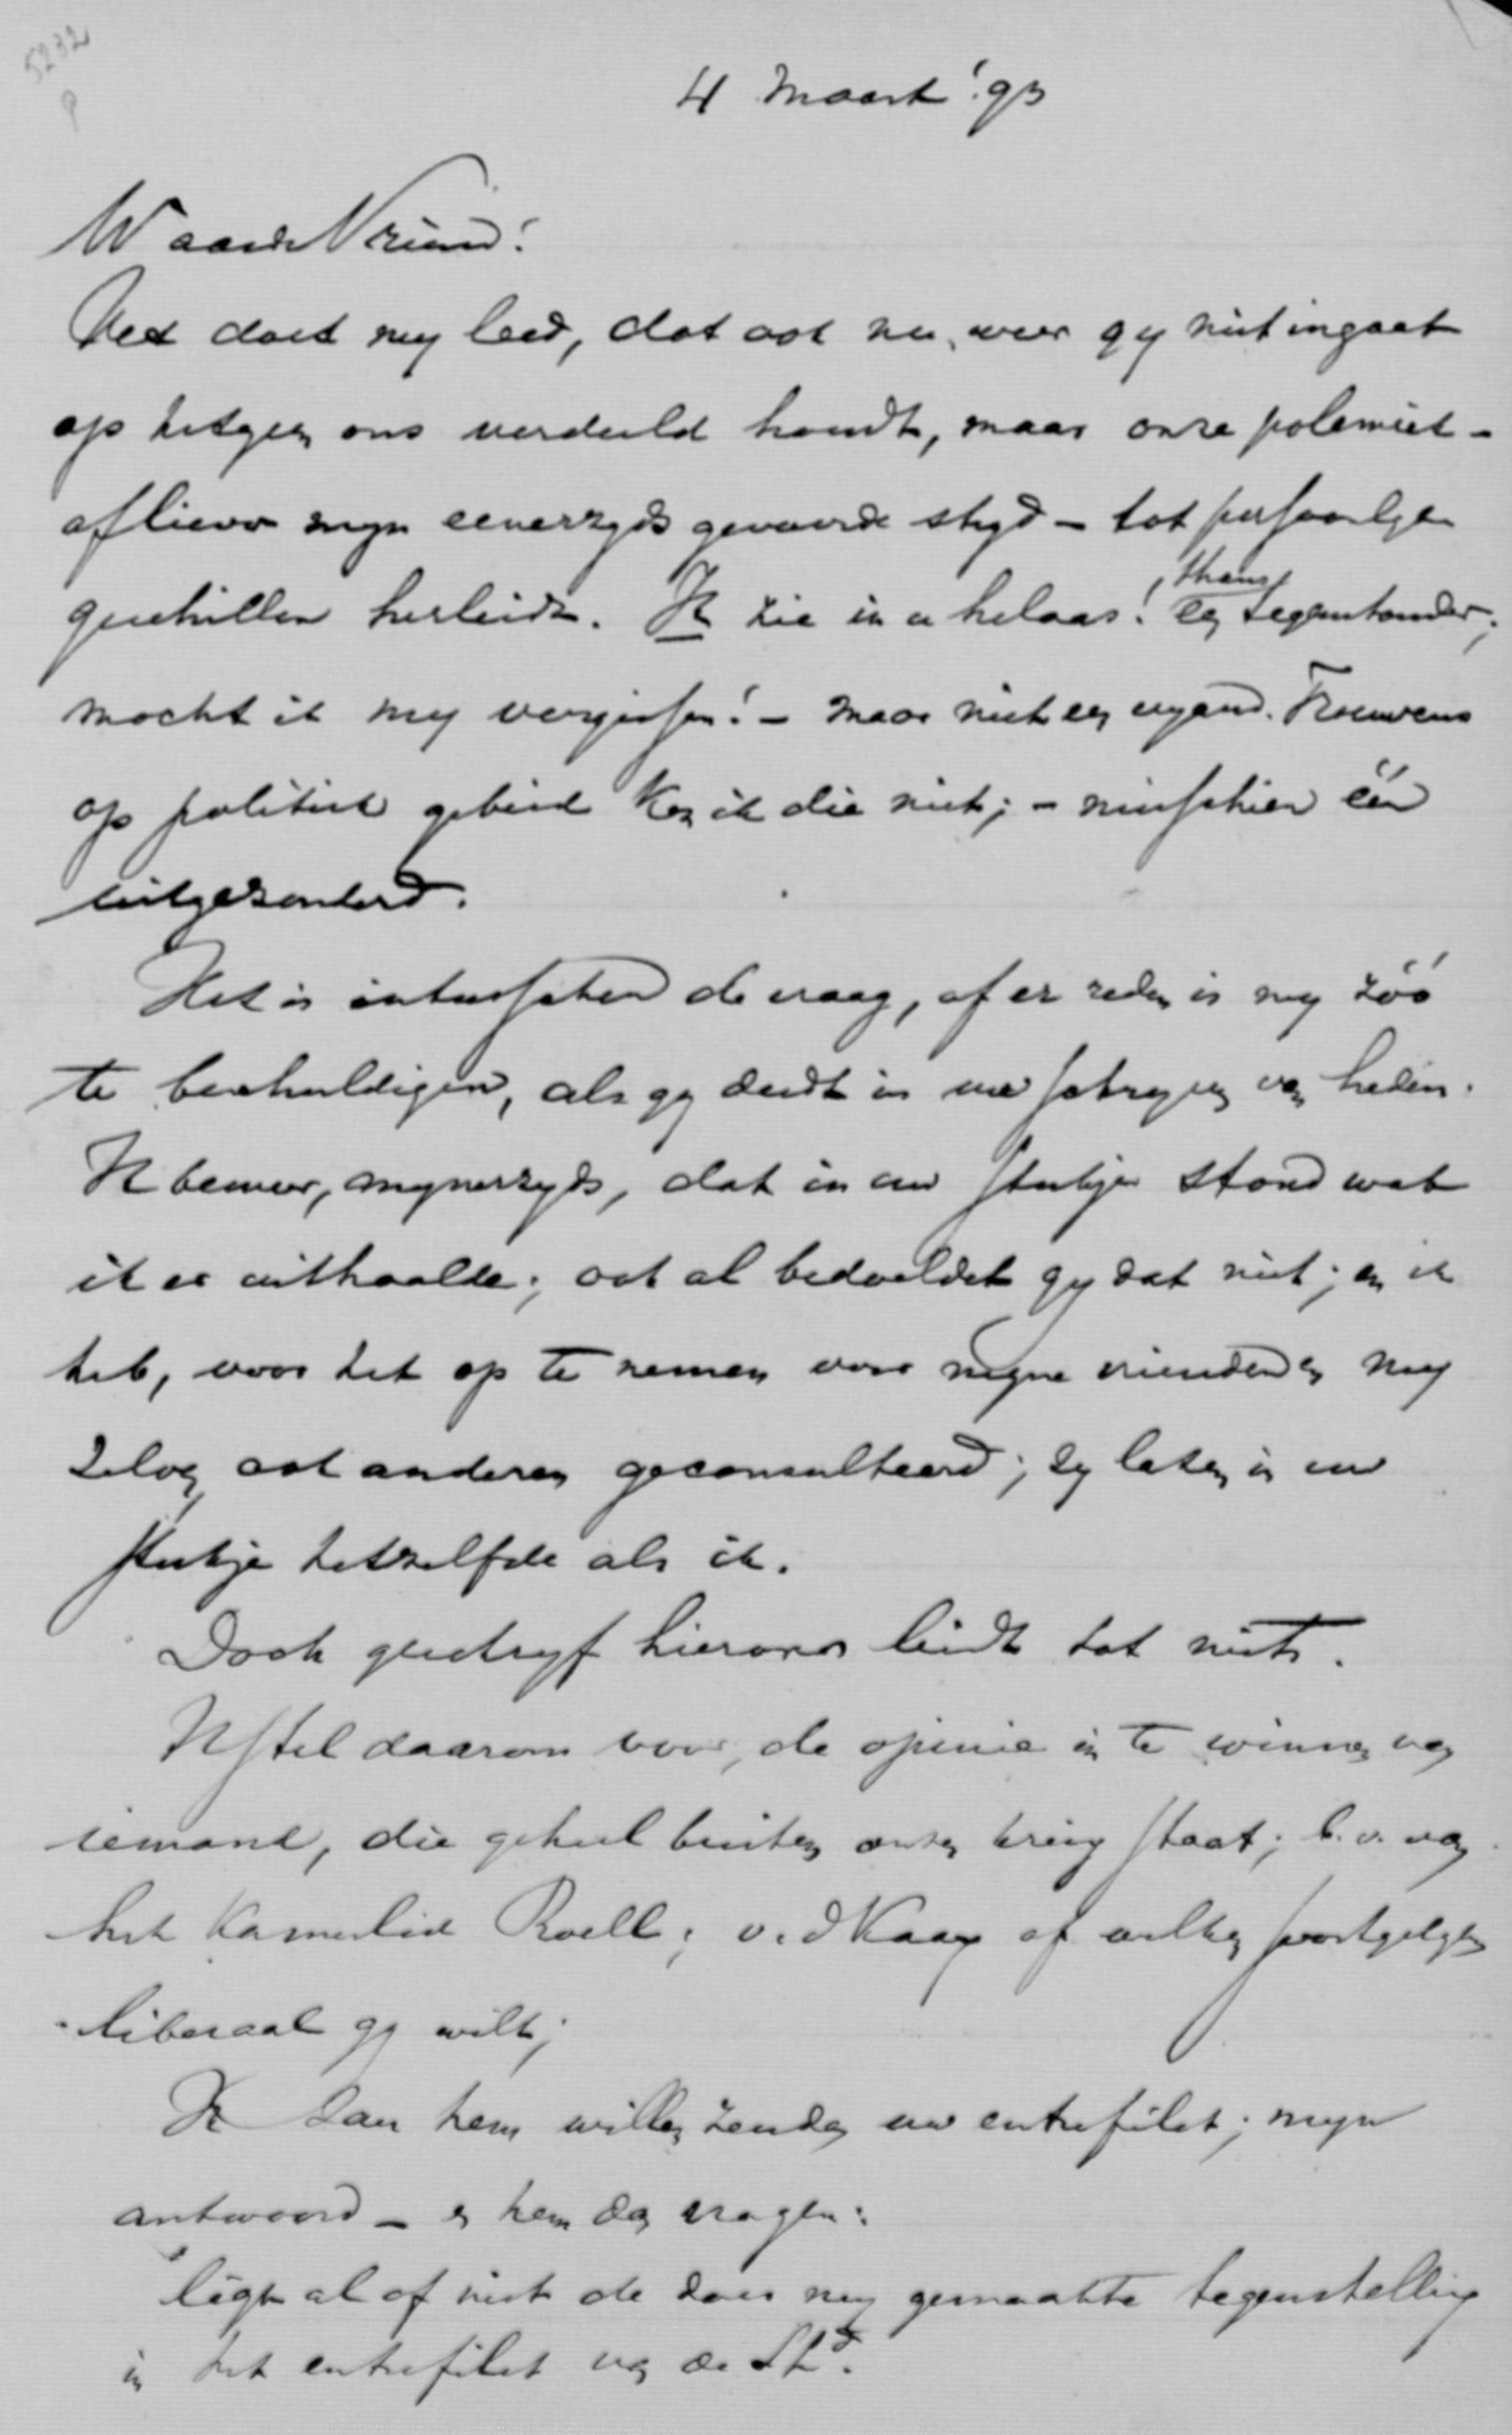 5232
4 Maart '93
Waarde Vriend!
Het doet my leed, dat ook nu, weer gy niet ingaat
op hetgeen ons verdeeld houdt, maar onze polemiek -
of liever myn eenerzyds gevoerde stryd - tot persoonlyke
geschillen herleidt. Ik zie in u helaas! thans een tegenstander;
mocht ik my vergissen! - maar niet een vyand. Trouwens
op politiek gebied ken ik die niet; - misschien één
uitgezonderd.
Het is intusschen de vraag, of er reden is my zóó
te beschuldigen, als gy deedt in uw schryven van heden.
Ik beweer, mynerzyds, dat in uw stukje stond wat
ik er uithaalde; ook al bedoeldet gy dat niet; en ik
heb, voor het op te nemen voor myne vrienden en my
zelve, ook anderen geconsulteerd; zy lezen in uw
stukje hetzelfde als ik.
Doch geschryf hierover leidt tot niets.
Ik stel daarom voor, de opinie in te winnen van
iemand, die geheel buiten onzen kring staat; b.v. van
het Kamerlid Roëll; v.d Kaay of welken soortgelyken
liberaal gy wilt;
Ik zou hem willen zenden uw entrefilet; myn
antwoord - en hem dan vragen:
"ligt al of niet de door my gemaakte tegenstelling
in het entrefilet van de Std.